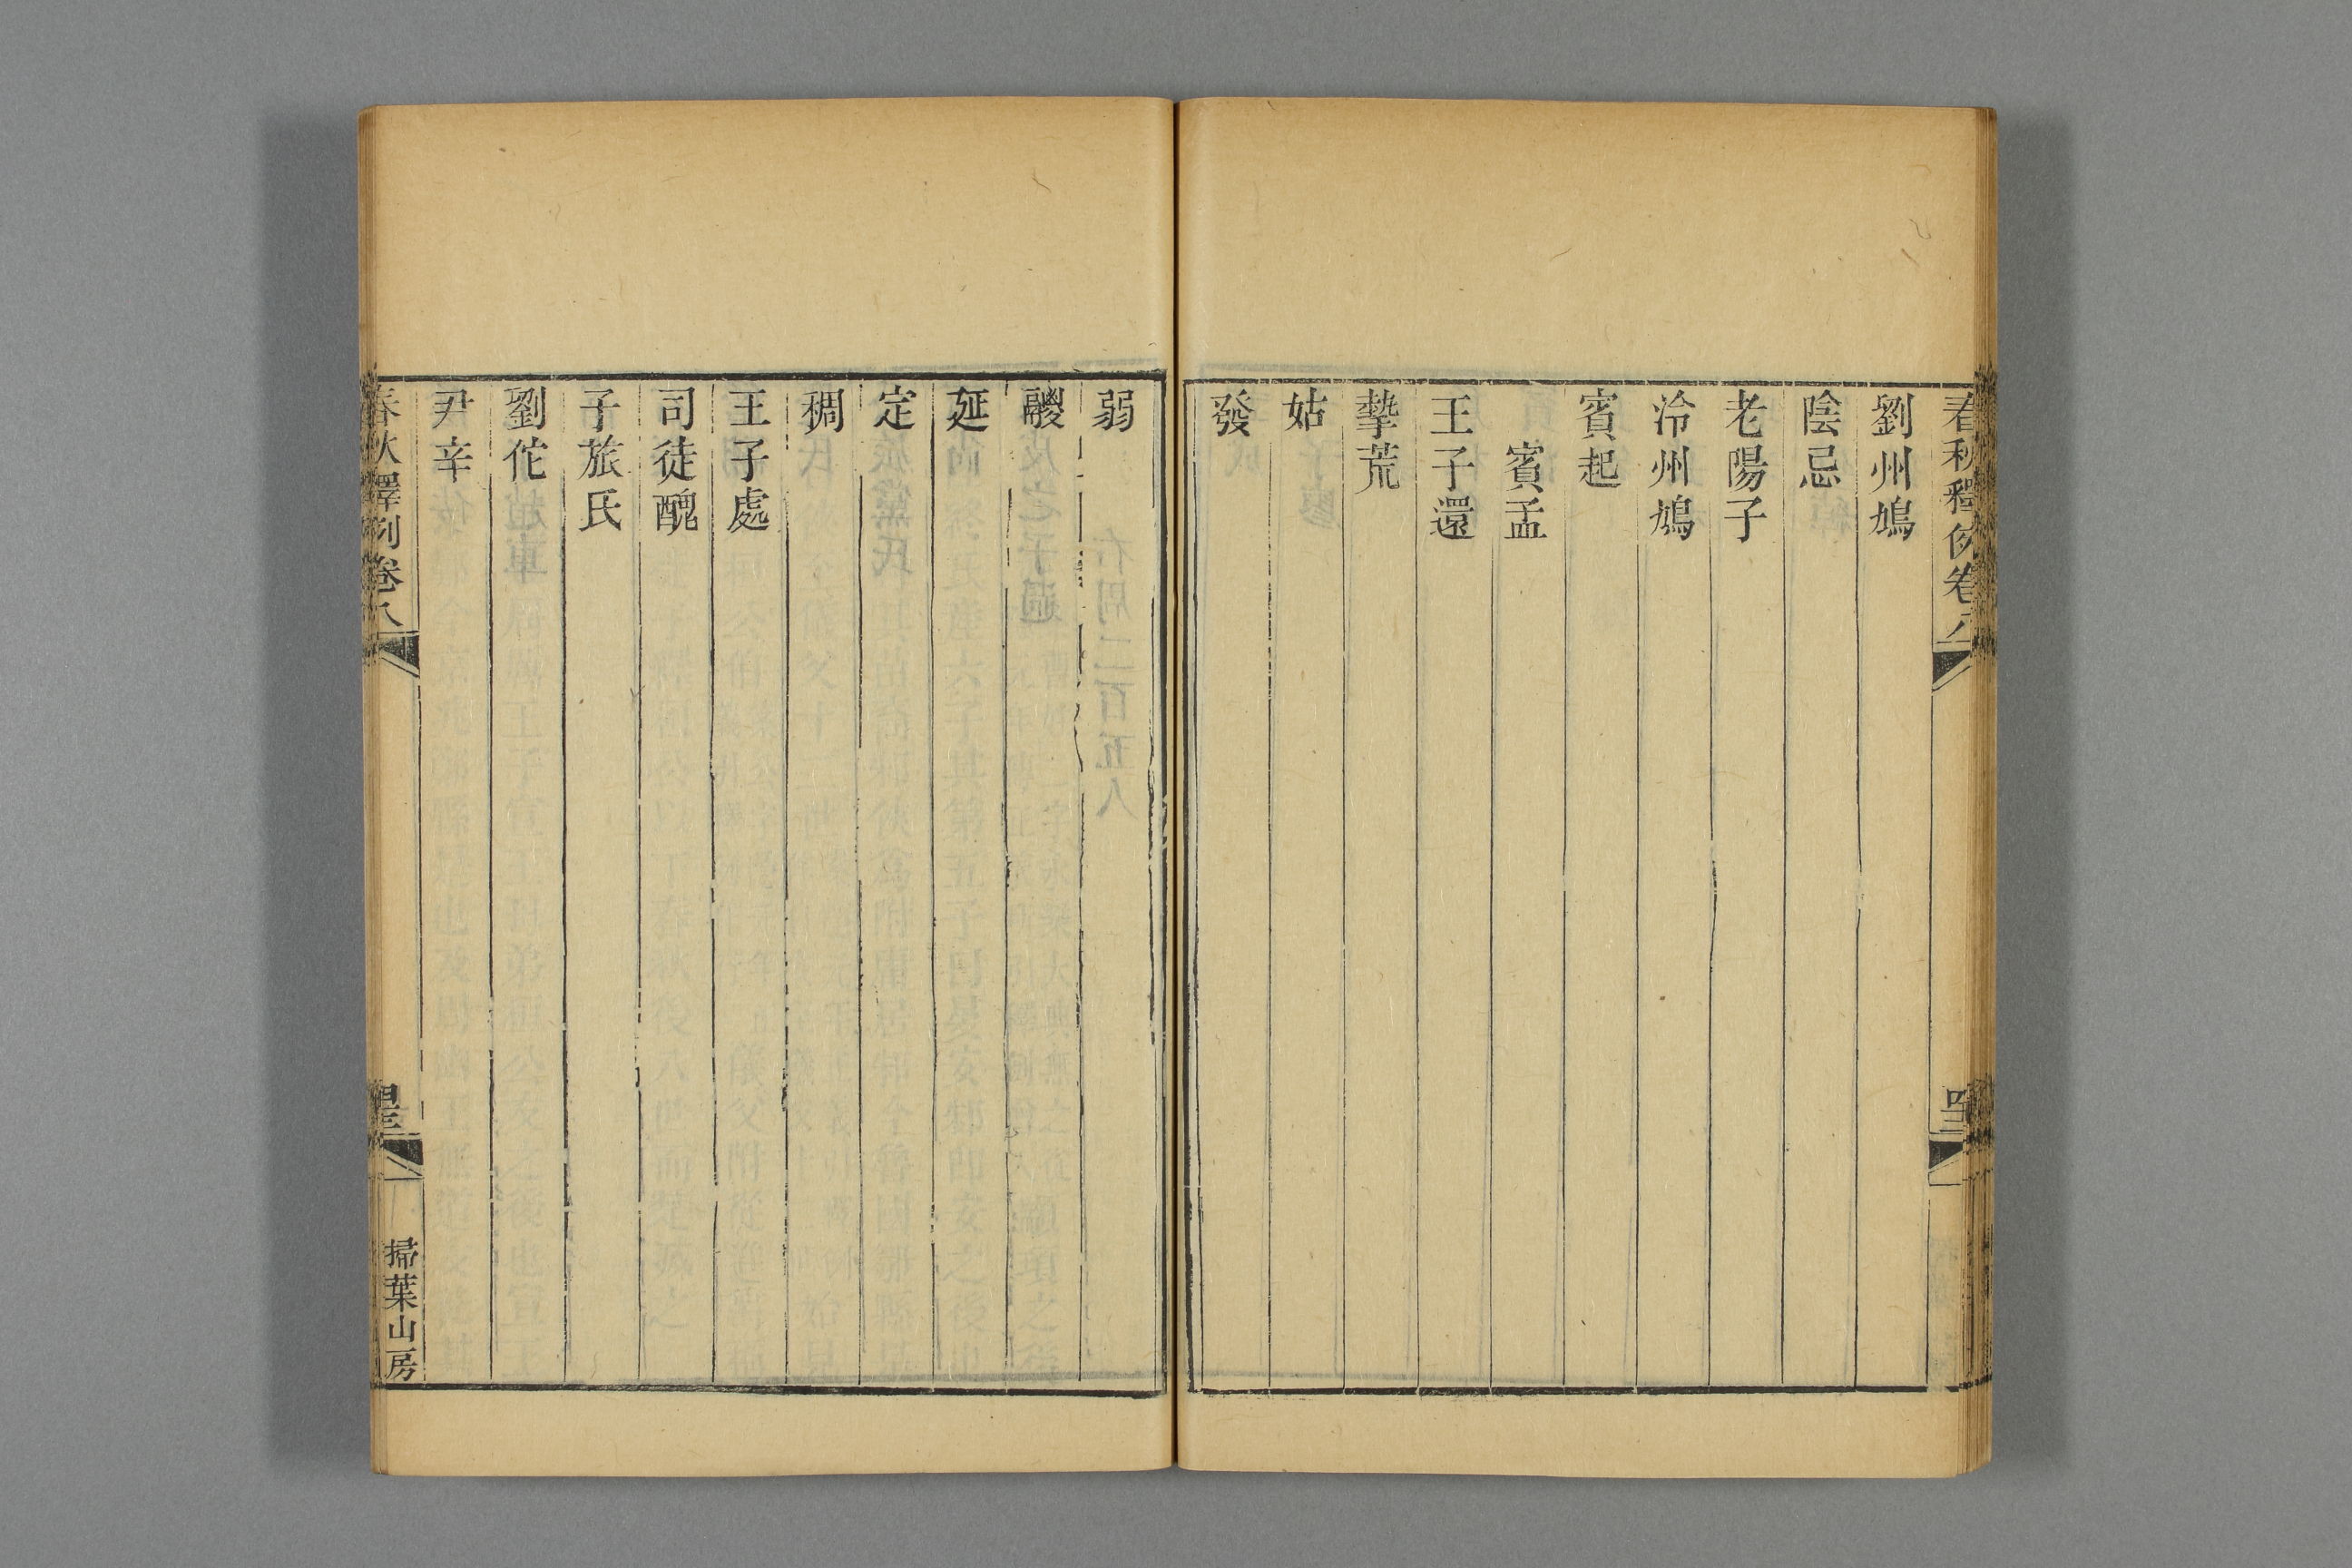 春秋釋例卷八
劉州鳩
陰忌
老陽子
泠州鳩
賓起
賓孟
王子還
摯荒
姑
發
弱
鬷
延
定
稠
王子處
司徒醜
子旅氏
劉佗
尹辛
春秋釋例卷八
掃葉山房